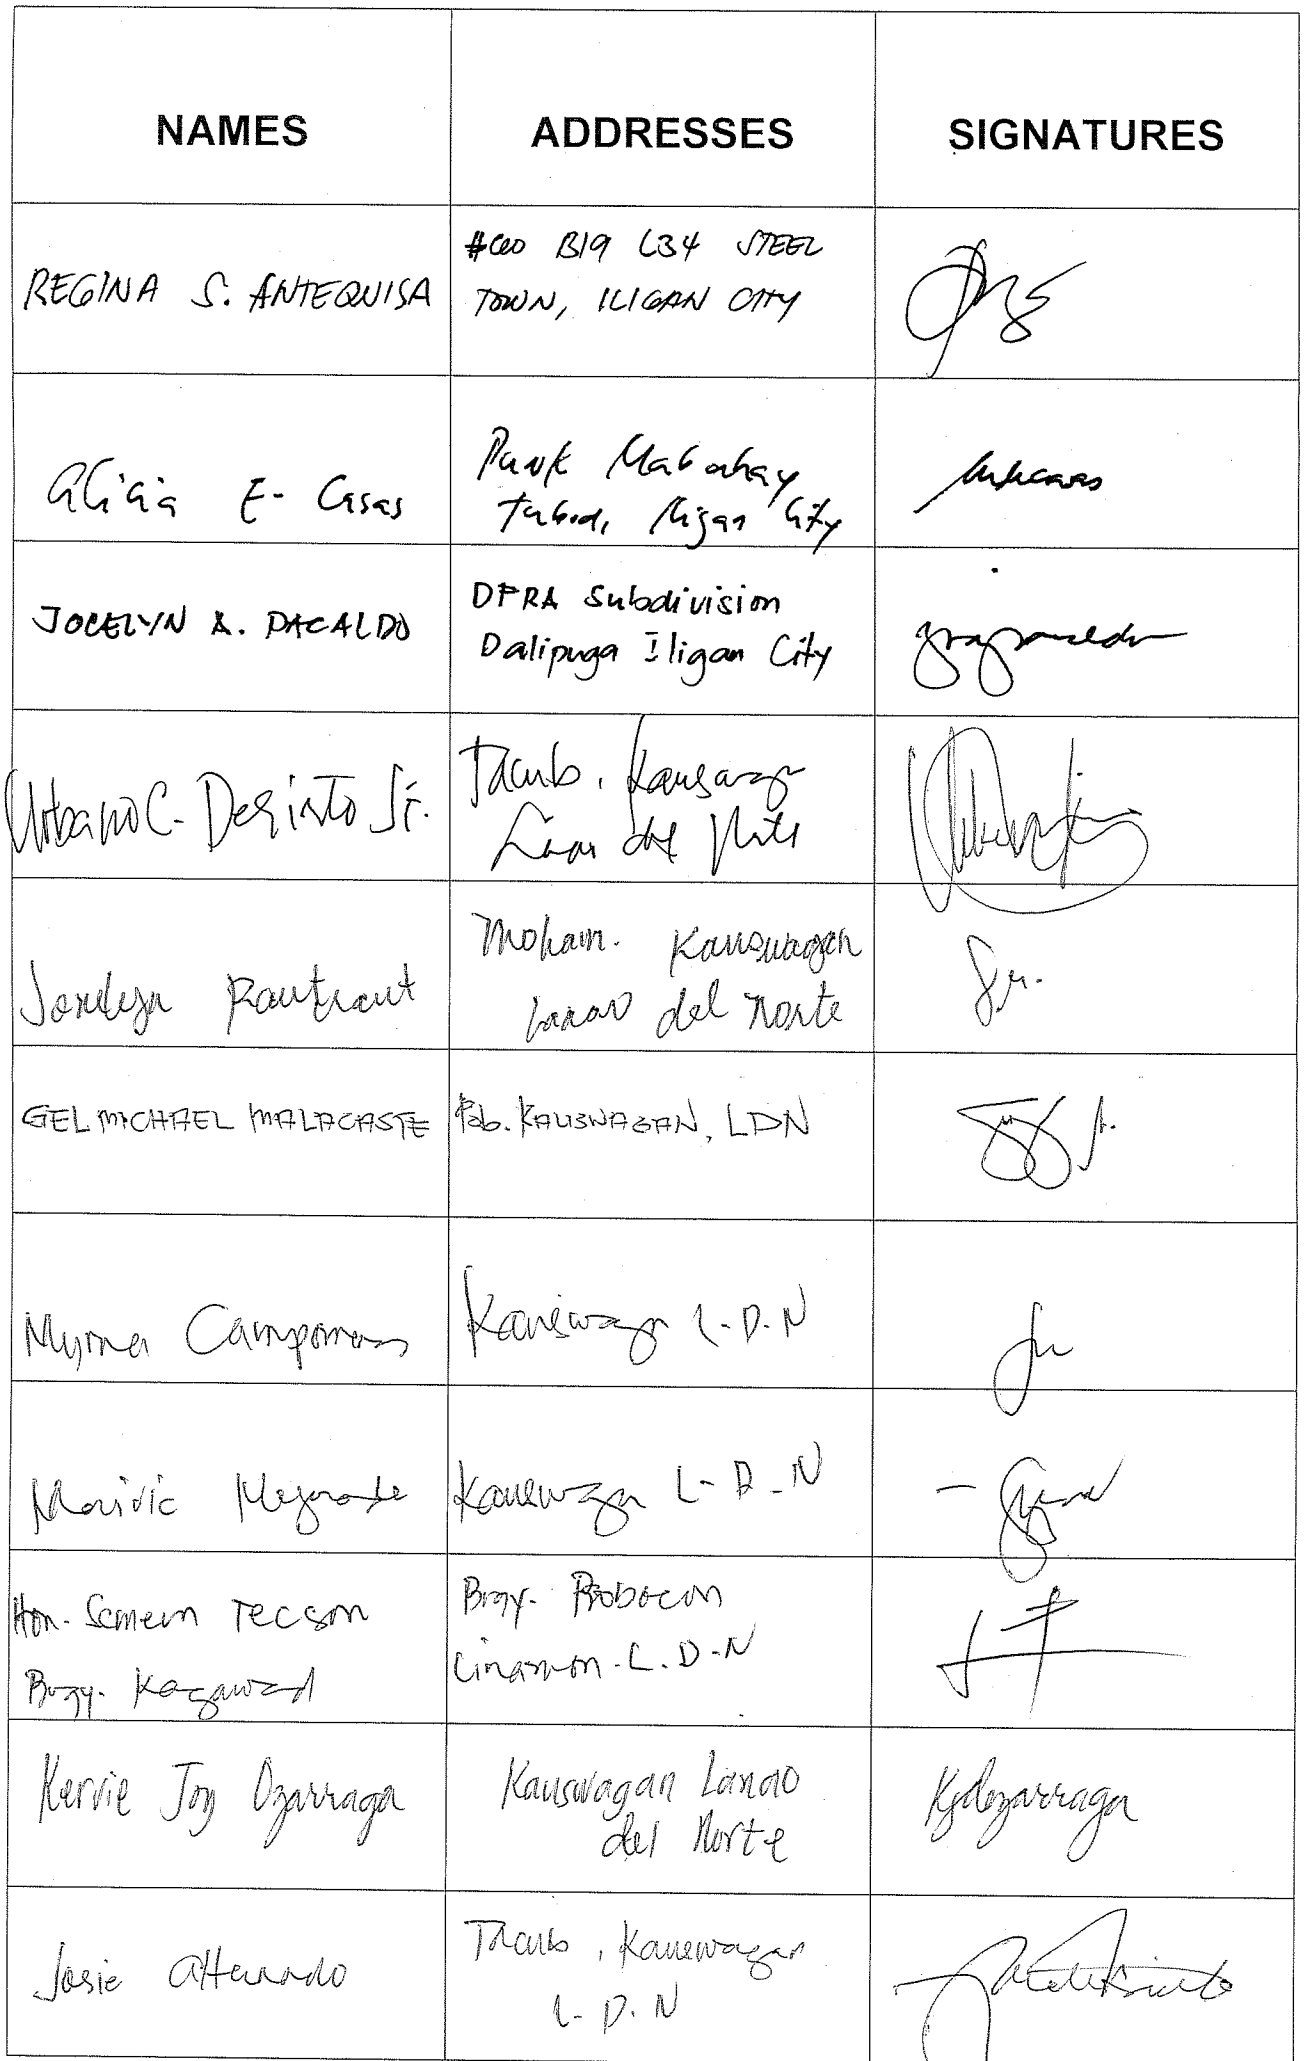 NAMES ADDRESSES SIGNATURES
REGINA S. ANTEQUISA
#600 B19 L34 STEEL
TOWN, ILIGAN CITY
Alicia E- Casas
Purok Mabuhay
Tubod, Iligan City
JOCELYN A. PACALDO
DPRA Subdivision
Dalipuga Iligan City
Urbano C. Desinto Sr.
Tacub, Kauswagan
Lanao del Norte
Kauswagan
Lanao del Norte
GEL MICHAEL MALACASTE
Pob. KAUSWAGAN, LDN
Myrna Campomanes
Kauswagan L-D.N
Marivic
Kauswagan L-D-N
Hon. Tecson
Brgy. Kagawad
Brgy.
L.D-N
Kervie Joy Ozarraga
Kauswagan Lanao
del Norte
Kjdozarraga
Josie
Tacub, Kauswagan
L-D.N